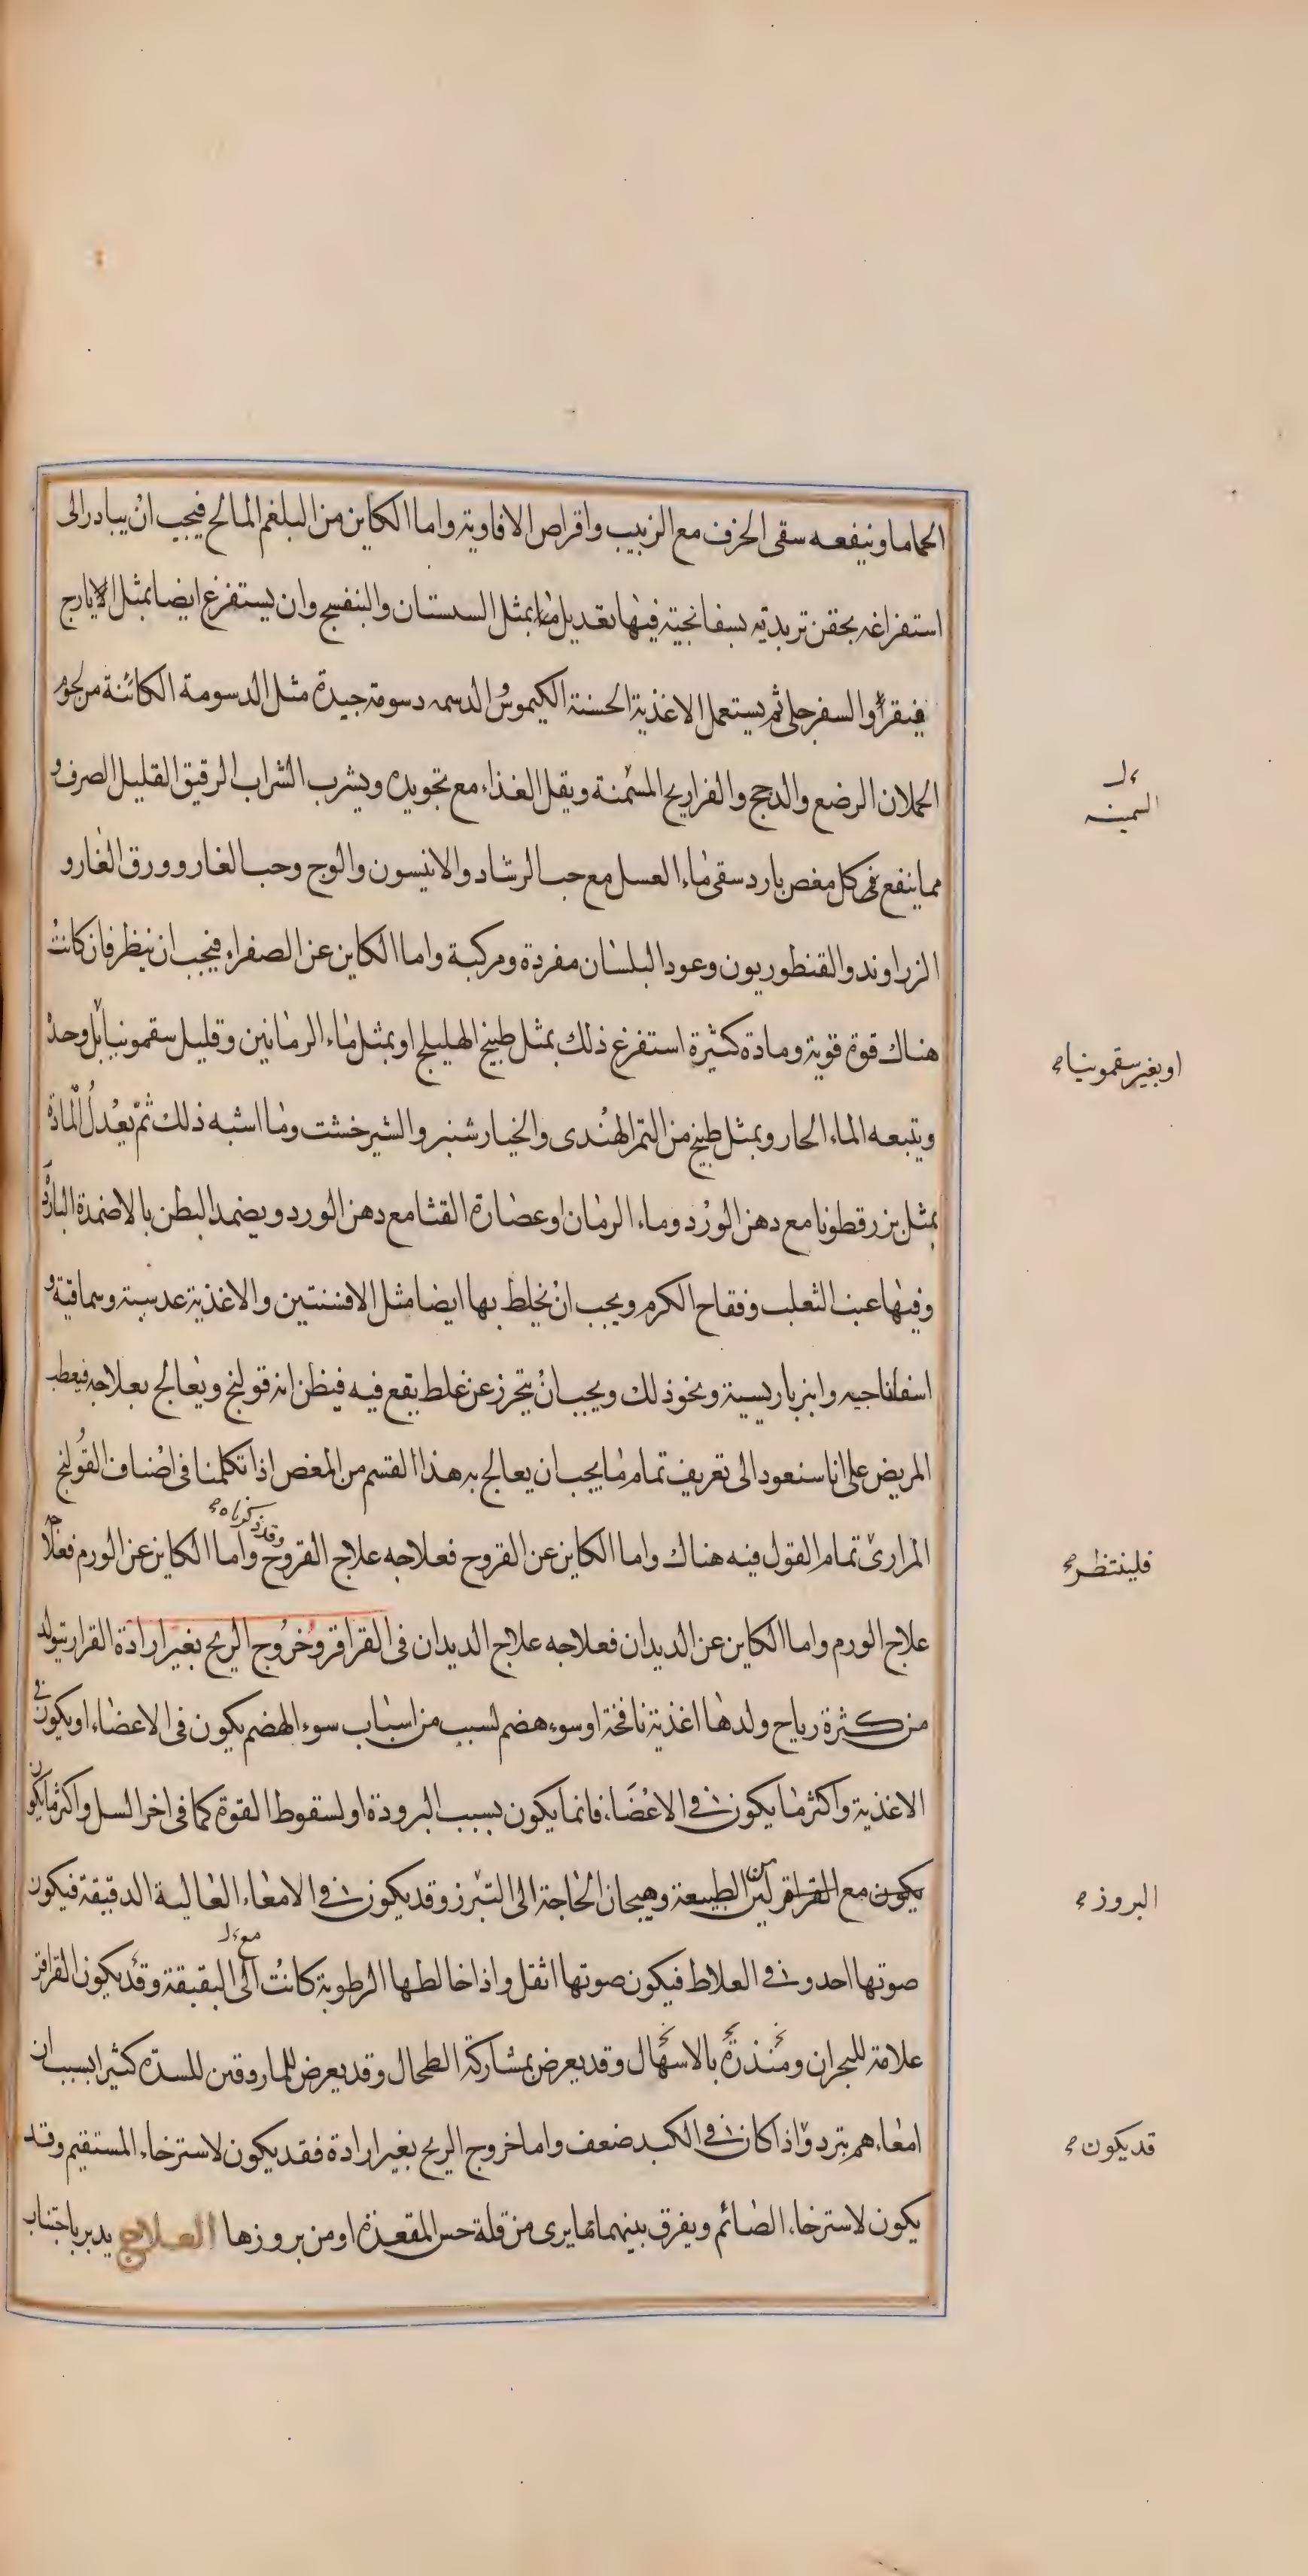 الحماما وينفعه سقى الحرف مع الزبيب واقراص الافاوية واما الكاين من البلغم المالح فيجب ان يبادر الى
استفراغه بحقن تربدية بسفانجية فيها تعديل ما بمثل السبستان والبنفسج وان يستفرغ ايضا بمثل الايارج
فيقرا والسفرجلى ثم يستعمل الاغذية الحسنة الكيموس الدسمه دسومة جيدة مثل الدسومة الكائنة من لحوم
الحملان الرضع والدجج والفراريج المسمنة ويقل الغذاء مع تجويده ويشرب الشراب الرقيق القليل الصرف و
السمينه
مما ينفع فى كل مغص بارد سقى ماء العسل مع حب الرشاد والانيسون والوج وحب الغار وورق الغار و
الزراوند والقنطوريون وعود البلسان مفردة ومركبة واما الكاين عن الصفراء فيجب ان ينظر فان كانت
هناك قوة قوية ومادة كثيرة استفرغ ذلك بمثل طبيخ الهليلج او بمثل ماء الرمانين وقليل سقمونيا بل وحده
او بغير سقمونيا
ويتبعه الماء الحار وبمثل طبيخ من التمر الهندى والخيارشنبر والشيرخشت وما اشبه ذلك ثم يعدل المادة
بمثل بزرقطونا مع دهن الورد وماء الرمان او عصارة القثا مع دهن الورد ويضمد البطن بالاضمدة الباردة
وفيها عنب الثعلب وفقاح الكرم ويجب ان يخلط بها ايضا مثل الافسنتين والاغذية عدسية وسماقية و
اسفاناجيه وانبرباريسية ونحو ذلك ويجب ان يتحرز عن غلط يقع فيه فيظن انه قولنج ويعالج بعلاجه فيعطب
المريض على انا سنعود الى تعريف تمام ما يجب ان يعالج به هذا القسم من المغص اذا تكلمنا فى اصناف القولنج
وقد ذكرناه
المرارى تمام القول فيه هناك واما الكاين عن القروح فعلاجه علاج القروح واما الكاين عن الورم فعلاجه
فلينتظر
علاج الورم واما الكاين عن الديدان فعلاجه علاج الديدان فى القراقر وخروج الريح بغير ارادة القرار يتولد
من كثرة رياح ولدها اغذية نافخة او سوء هضم لسبب من اسباب سوء الهضم يكون فى الاعضاء او يكون فى
الاغذية واكثر ما يكون فى الاعضاء فانما يكون بسبب البرودة او لسقوط القوة كما فى اخر السل واكثر ما يكون
يكون مع القراقر لين الطبيعة وهيجان الحاجة الى التبرز وقد يكون فى الامعاء العالية الدقيقة فيكون
البروز
مع
صوتها احد و فى الغلاط فيكون صوتها اثقل واذا خالطها الرطوبة كانت الى البقبقة وقد يكون القراقر
علامة للبحران ومنذرة بالاسهال وقد يعرض بمشاركة الطحال وقد يعرض للماروقين للسدة كثيرا بسبب ان
امعاءهم تبرد واذا كان فى الكبد ضعف واما خروج الريح بغير ارادة فقد يكون لاسترخاء المستقيم وقد
قد يكون
يكون لاسترخاء الصائم ويفرق بينهما بما يرى من قلة حس المقعدة او من بروزها العلاج يدبر باجتناب